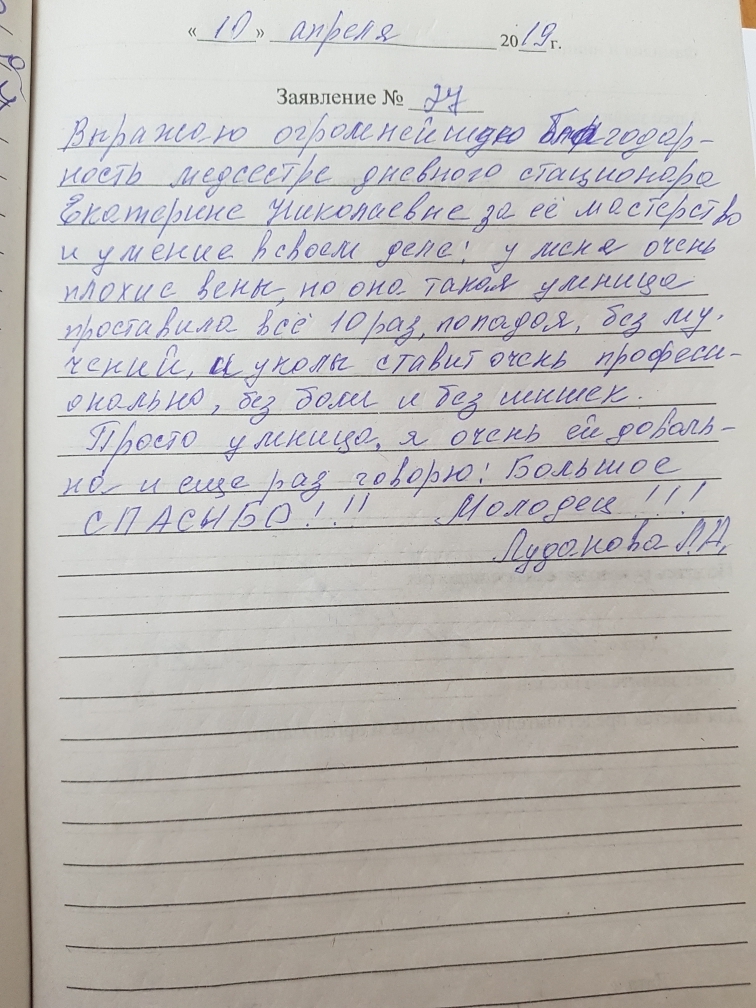 « 10 » апреля 2019 г.
Заявление № 27
Выражаю огромнейшую благодар-
ность медсестре дневного стационара
Екатерине Николаевне за её мастерство
и умение в своем деле! у меня очень
плохие вены, но она такая умница
проставила всё 10 раз, попадая, без му-
чений, и уколы ставит очень професи-
онально, без боли и без шишек.
Просто умница, я очень ей доволь-
на и еще раз говорю! Большое
СПАСЫБО!!! Молодец!!!
Луданова Л.А.